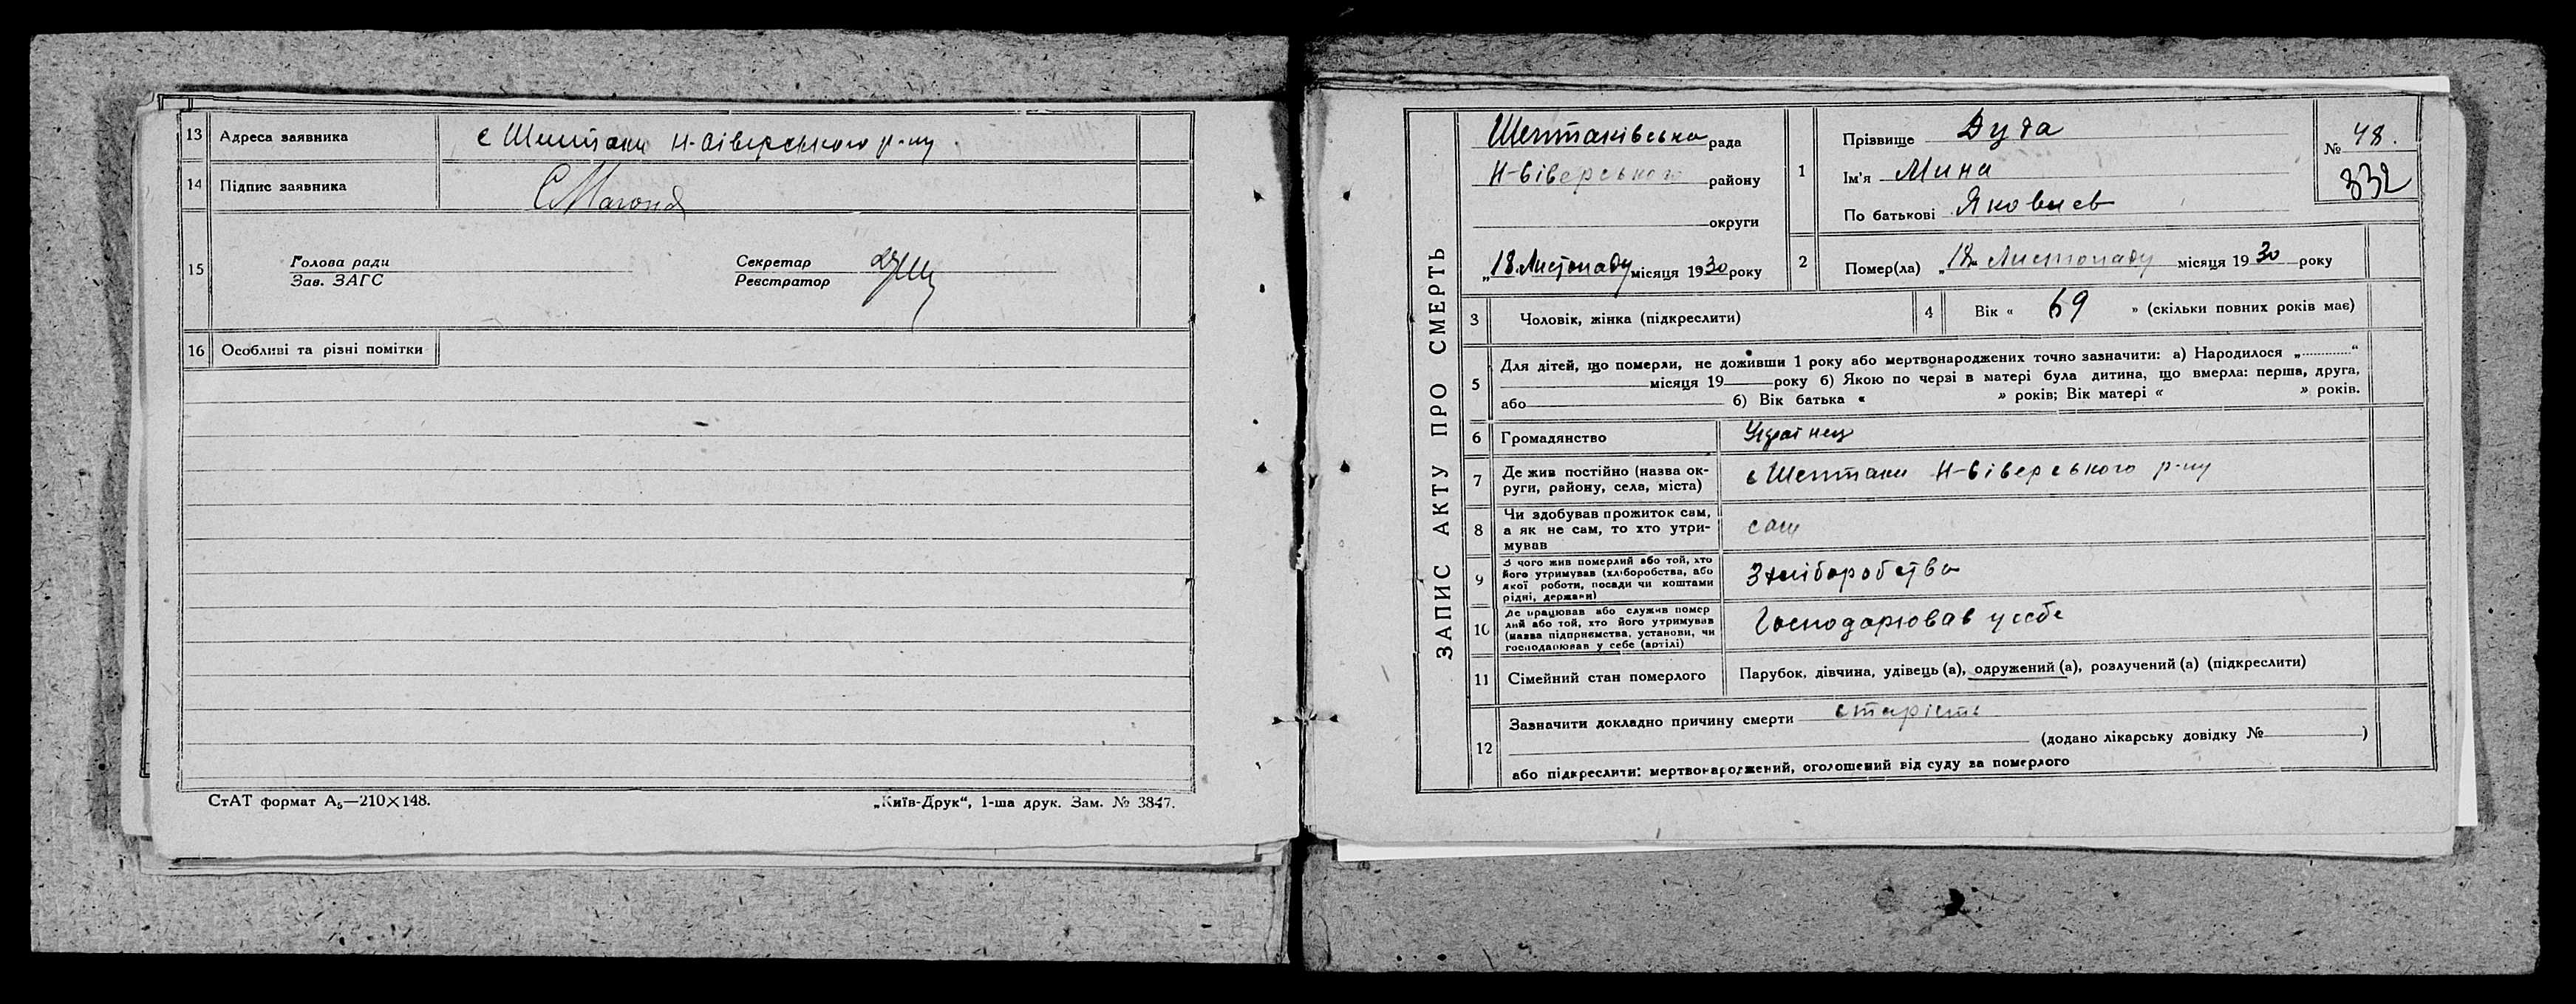 13 Адреса заявника с Шептаки Н-Сіверського р-ну
14 Підпис заявника
15 Голова ради Секретар
Зав. ЗАГС Реєстратор
16 Особливі та різні помітки
СтАТ формат А5—210×148. „Київ-Друк“, 1-ша друк. Зам. № 3847.
ЗАПИС АКТУ ПРО СМЕРТЬ
Шептаківська рада
Н-Сіверського району
округи
„18 Листопаду місяця 1930 року
1 Прізвище Дуда
Ім'я Мина
По батькові Яковлев
№ 48.
332
2 Помер(ла) „18„ Листопаду місяця 1930 року
3 Чоловік, жінка (підкреслити)
4 Вік « 69 » (скільки повних років має)
5 Для дітей, що померли, не доживши 1 року або мертвонароджених точно зазначити: а) Народилося „ “
місяця 19 року б) Якою по черзі в матері була дитина, що вмерла: перша, друга,
або б) Вік батька « » років; Вік матері « » років.
6 Громадянство Українец
7 Де жив постійно (назва ок-
руги, району, села, міста) с Шептаки Н-Сіверського р-ну
8 Чи здобував прожиток сам,
а як не сам, то хто утри-
мував сам
9 З чого жив померлий або той, хто
його утримував (хліборобства, або
якої роботи, посади чи коштами
рідні, держави) З хліборобства
10 Де працював або служив помер
лий або той, хто його утримував
(назва підприємства, установи, чи
господарював у себе (артілі) Господарював у себе
11 Сімейний стан померлого Парубок, дівчина, удівець (а), одружений (а), розлучений (а) (підкреслити)
12 Зазначити докладно причину смерти старість
(додано лікарську довідку № )
або підкреслити: мертвонароджений, оголошений від суду за померлого